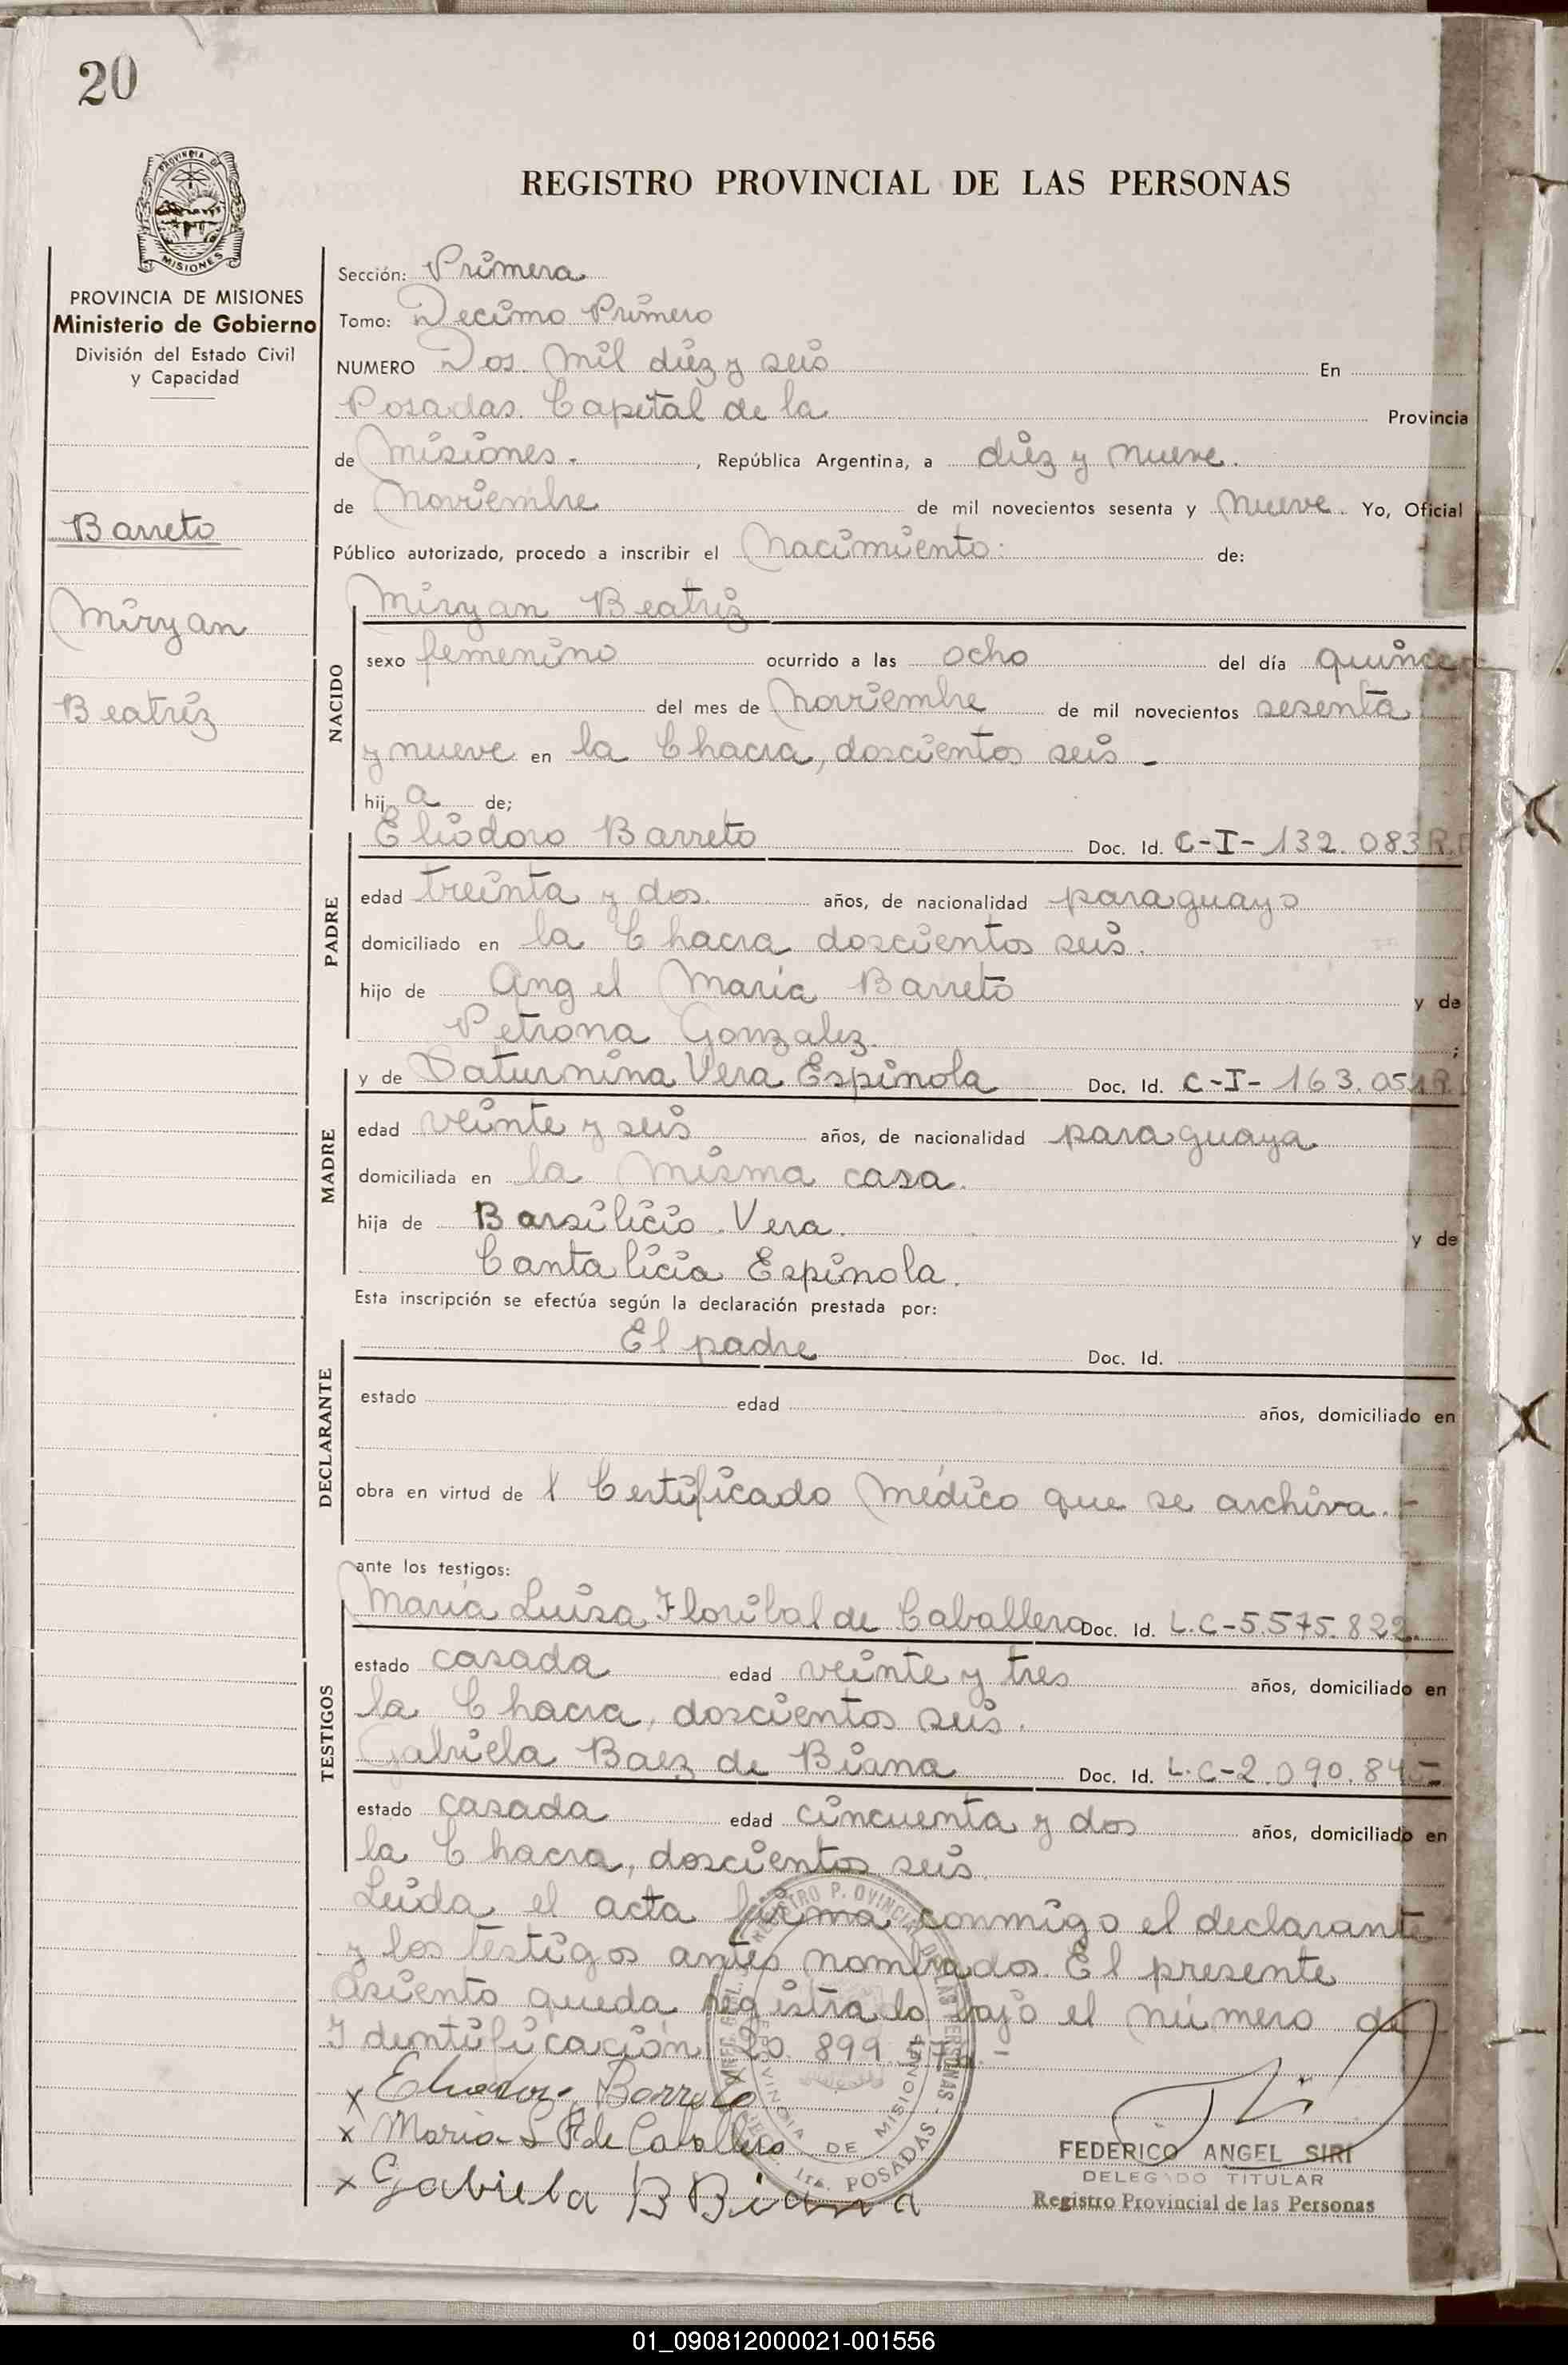 20
PROVINCIA D
MISIONES
REGISTRO PROVINCIAL DE LAS PERSONAS
PROVINCIA DE MISIONES
Ministerio de Gobierno
División del Estado Civil
y Capacidad
Barreto
Miryan
Beatriz
Sección: Primera
Tomo: Decimo Primero
NUMERO Dos Mil diez y seis En
Posadas Capital de la Provincia
de Misiones.- , República Argentina, a diez y nueve.
de Noviembre de mil novecientos sesenta y Nueve. Yo, Oficial
Público autorizado, procedo a inscribir el Nacimiento: de:
NACIDO
Miryan Beatriz
sexo femenino ocurrido a las ocho del día quince
del mes de Noviembre de mil novecientos sesenta
y nueve en la Chacra, doscientos seis -
hij a de;
PADRE
Eliodoro Barreto Doc. Id. C-I-132.083R.
edad treinta y dos. años, de nacionalidad paraguayo
domiciliado en la Chacra doscientos seis.
hijo de Angel María Barreto y de
Petrona Gonzalez. ;
MADRE
y de Saturnina Vera Espinola Doc. Id. C-I-163.051R.
edad veinte y seis años, de nacionalidad paraguaya.
domiciliada en la Misma casa.
hija de Barsilicio Vera. y de
Cantalicia Espinola.
Esta inscripción se efectúa según la declaración prestada por:
DECLARANTE
El padre Doc. Id.
estado edad años, domiciliado en
obra en virtud de l Certificado Médico que se archiva.-
ante los testigos:
TESTIGOS
María Luisa Floribal de Caballero Doc. Id. L.C-5.575.822.
estado casada edad veinte y tres años, domiciliado en
la Chacra, doscientos seis.
Gabriela Baez de Biana Doc. Id. L.C-2.090.845-
estado casada edad cincuenta y dos años, domiciliado en
la Chacra, doscientos seis.
Leida el acta firma conmigo el declarante
y los testigos antes nombrados. El presente
asiento queda registrado bajo el número de
Identificación 20.899
REGISTRO P. OVINCIAL DE LAS PERSONAS - POSADAS
PROVINCIA DE MISIONES
x Eliodoro Barreto
x Maria L F de Caballero
x Gabriela B Biana
FEDERICO ANGEL SIRI
DELEGADO TITULAR
Registro Provincial de las Personas
01_090812000021-001556